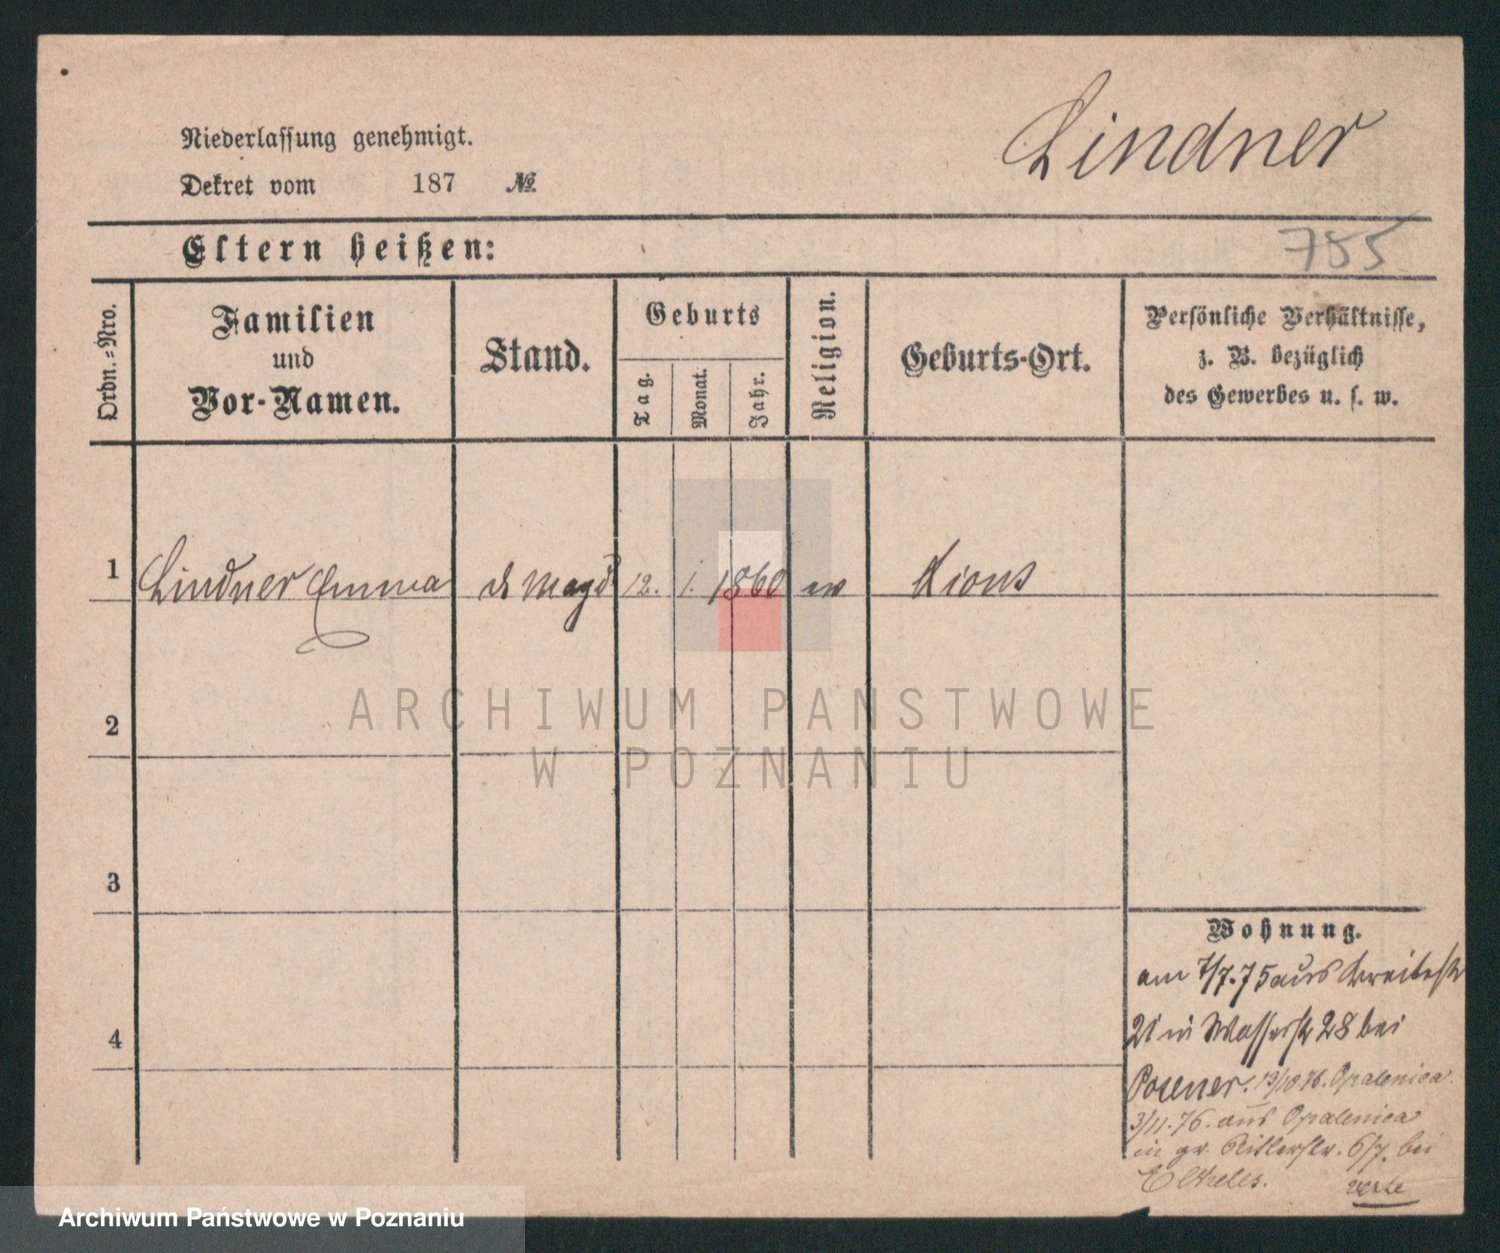 Lindner
Niederlassung genehmigt.
Dekret vom 187 №.
Eltern heißen:
785
Ordn.-Nro.
Familien
und
Vor-Namen.
Stand.
Geburts
Tag.
Monat.
Jahr.
Religion.
Geburts-Ort.
Persönliche Verhältnisse,
z. B. bezüglich
des Gewerbes u. s. w.
1 Lindner Emma d. Magd 12. 1. 1860 ev Xions
2
3
4
Wohnung.
am 7/7.75 aus Breitestr
21 in Wasserstr 28 bei
Posener. 19/10 76. Opalenica.
3/11. 76. aus Opalenica
in gr. Ritterstr. 6/7. bei
Elkeles.
verte
ARCHIWUM PAŃSTWOWE
W POZNANIU
Archiwum Państwowe w Poznaniu